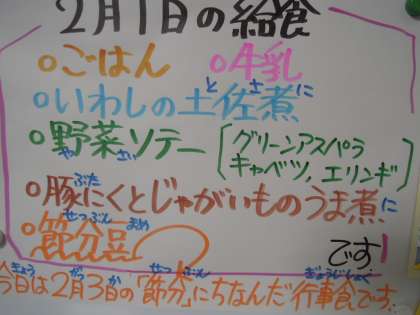 2月1日の給食
○ごはん ○牛乳
○いわしの土佐煮
○野菜ソテー（グリーンアスパラ
キャベツ,エリンギ）
○豚にくとじゃがいものうま煮
○節分豆
です
今日は2月3日の「節分」にちなんだ行事食です.